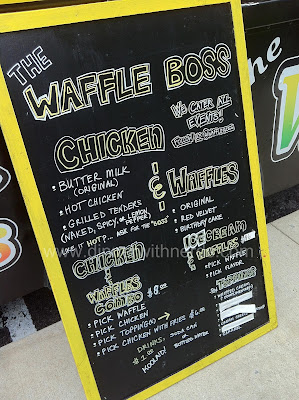 THE
WAFFLE BOSS
WE CATER ALL
EVENTS!
CHICKEN
• BUTTER MILK
(ORIGINAL)
• HOT CHICKEN
• GRILLED TENDERS
(NAKED, SPICY, OR LEMON PEPPER)
ASK FOR THE "BOSS"
&
WAFFLES
• ORIGINAL
• RED VELVET
• BIRTHDAY CAKE
ICECREAM
& WAFFLES
• PICK WAFFLE
• PICK FLAVOR
TOPPINGS
CHICKEN
&
WAFFLES
COMBO $8.00
• PICK WAFFLE
• PICK CHICKEN
• PICK TOPPING(S)
• PICK CHICKEN WITH FRIES $6.00
DRINKS:
$1.00 SODA CAN
KOOLAID! OR BOTTLED WATER
he